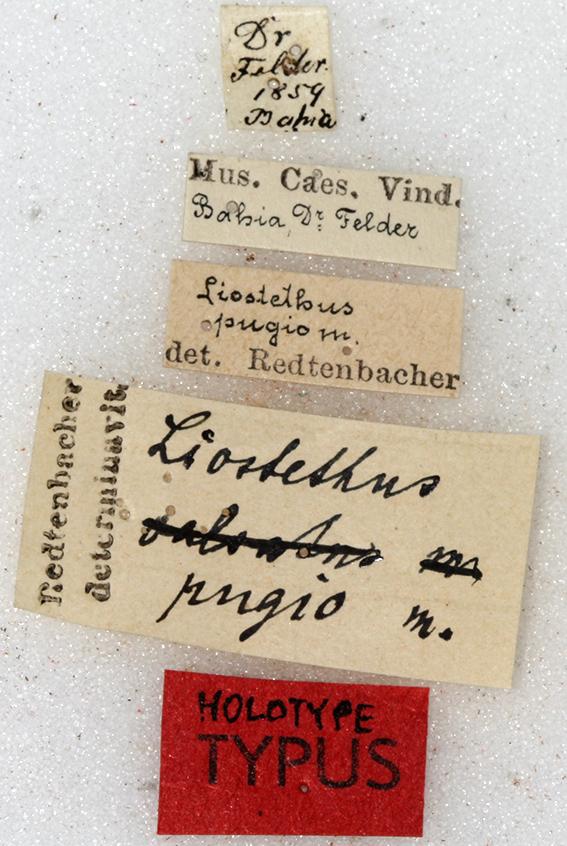 Dr
Felder.
1859
Bahia
Mus. Caes. Vind.
Bahia, Dr. Felder
Liostethus
pugio m.
det. Redtenbacher
Redtenbacher
determinavit.
Liostethus
m
pugio m.
HOLOTYPE
TYPUS